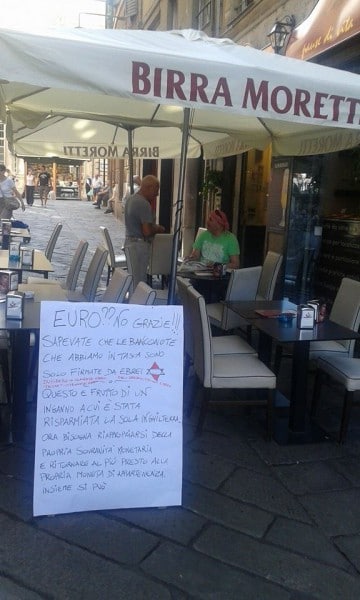 BIRRA MORETTI
BIRRA MORETTI
EURO?? NO GRAZIE!!!
SAPEVATE CHE LE BANCONOTE
CHE ABBIAMO IN TASCA SONO
SOLO FIRMATE DA EBREI
QUESTO E FRUTO DI UN
INGANNO A CUI È STATA
RISPARMIATA LA SOLA INGHILTERRA.
ORA BISOGNA RIAPPROPIARSI DELLA
PROPRIA SOVRANITÀ MONETARIA
E RITORNARE AL PIÙ PRESTO ALLA
PROPRIA MONETA DI APPARTENENZA.
INSIEME SI PUÒ